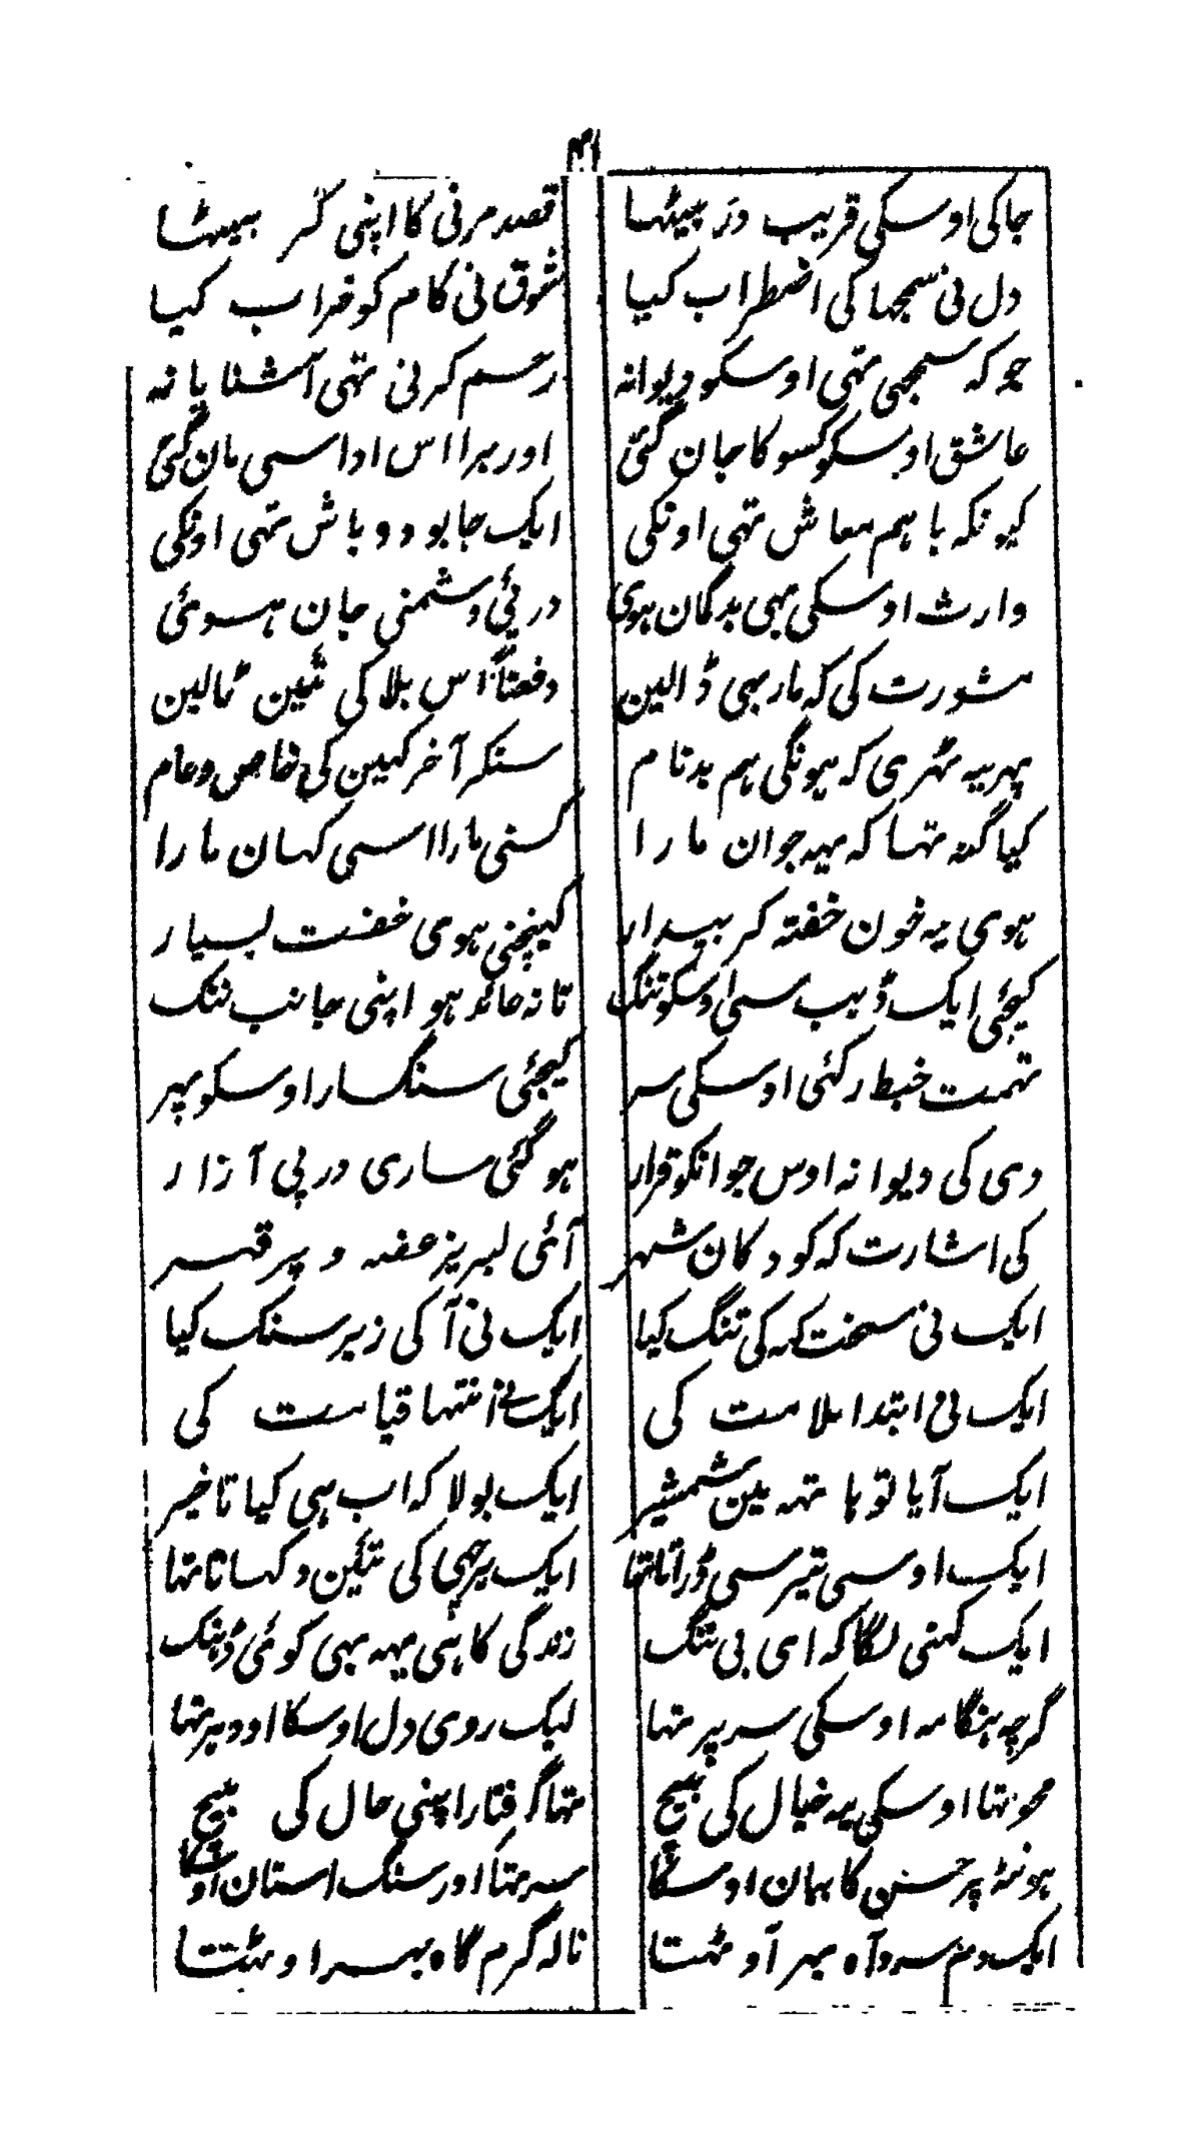 ۴۱
جاکی اوسکی قریب در بیٹھا
قصد مرنی کا اپنی کر بیٹھا
دل نی سمجھا کی اضطراب کیا
شوق نی کام کو خراب کیا
جو کہ سمجھی تھی اوسکو دیوانہ
رحم کرنی تھی آشنایانہ
عاشق اوسکو کسو کا جان گئی
اور برا اس ادا سی مان گئی
کیونکہ باہم معاش تھی اونکی
ایک جا بود و باش تھی اونکی
وارث اوسکی بھی بدگمان ہوی
در پئی دشمنی جان ہوئی
مشورت کی کہ مار بھی ڈالین
دفعتاً اس بلا کی تئین ٹالین
پھر یہ ٹھری کہ ہونگی ہم بدنام
سنکر آخر کہین کی خاص و عام
کیا گنہ تھا کہ یہ جوان مارا
کسنی مارا اسی کہان مارا
ہوی یہ خون خفتہ کر بیدار
کھینچنی ہومی خفت بسیار
کیجئی ایک ڈہب سی اوسکو تنگ
تا نہ عائد ہو اپنی جانب ننگ
تہمت خبط رکھی اوسکی سر
کیجئی سنگسار اوسکو پھر
دی کی دیوانہ اوس جوانکو قرار
ہو گئی ساری در پی آزار
کی اشارت کہ کودکان شہر
آئی لبریز غصہ و پر قہر
ایک نی سخت کہہ کی تنگ کیا
ایک نی آ کی زیر سنگ کیا
ایک نی ابتدا ملامت کی
ایک نے انتہا قیامت کی
ایک آیا تو ہاتھہ مین شمشیر
ایک بولا کہ اب ہی کیا تاخیر
ایک اوسی تیر سی ڈراتا تھا
ایک برچھی کی تئین دکہاتا تھا
ایک کہنی لگا کہ ای بی ننگ
زندگی کا ہی یہہ بھی کوئی ڈہنک
گرچہ ہنگامہ اوسکی سر پر تھا
لیک روی دل اوسکا اودہر تھا
محو تھا اوسکی یہ خیال کی بیچ
تھا گرفتار اپنی حال کی بیچ
ہونٹہ پر حسن کا بیان اوسکا
سر تھا اور سنگ استان اوسکا
ایک دم سرد آہ بھر آوٹھتا
نالہ گرم گاہ بسر اوٹھتا